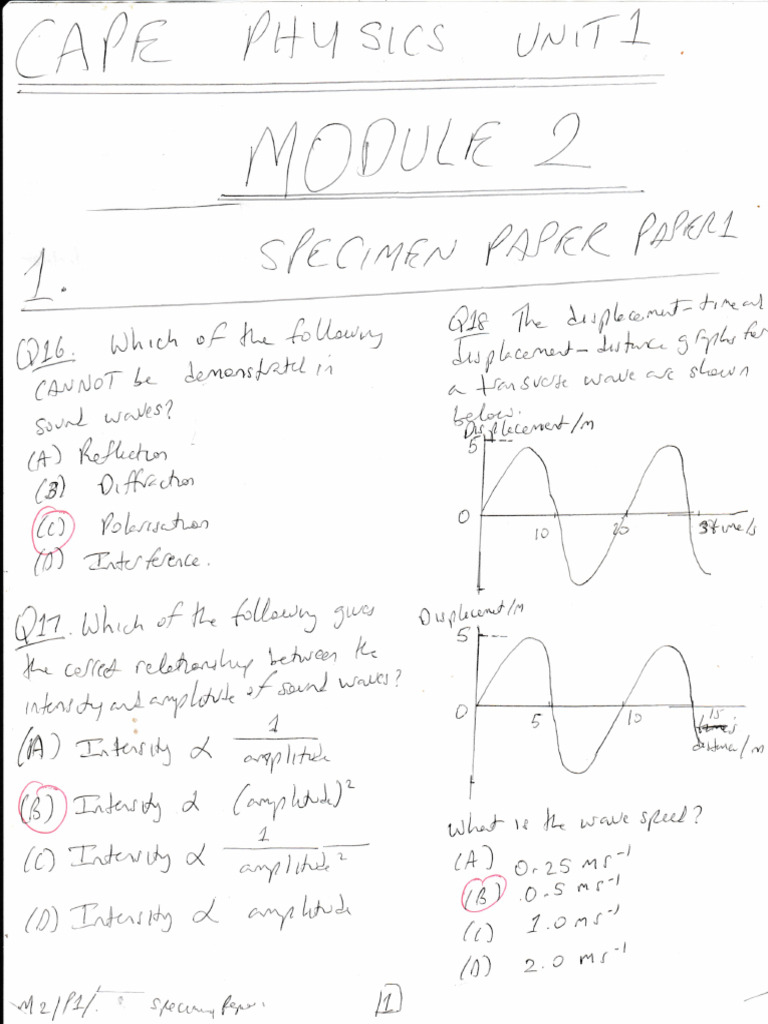 CAPE PHYSICS UNIT 1
MODULE 2
1. SPECIMEN PAPER PAPER 1
Q16. Which of the following
CANNOT be demonstrated in
sound waves?
(A) Reflection
(B) Diffraction
(C) Polarisation
(D) Interference.
Q17. Which of the following gives
the correct relationship between the
intensity and amplitude of sound waves?
(A) Intensity α 1/amplitude
(B) Intensity α (amplitude)²
(C) Intensity α 1/amplitude²
(D) Intensity α amplitude
Q18 The displacement-time and
displacement-distance graphs for
a transverse wave are shown
below.
Displacement/m
5
0
10
20
time/s
Displacement/m
5
0
5
10
15
distance/m
What is the wave speed?
(A) 0.25 ms⁻¹
(B) 0.5 ms⁻¹
(C) 1.0 ms⁻¹
(D) 2.0 ms⁻¹
M2/P1/
Specimen Paper.
1